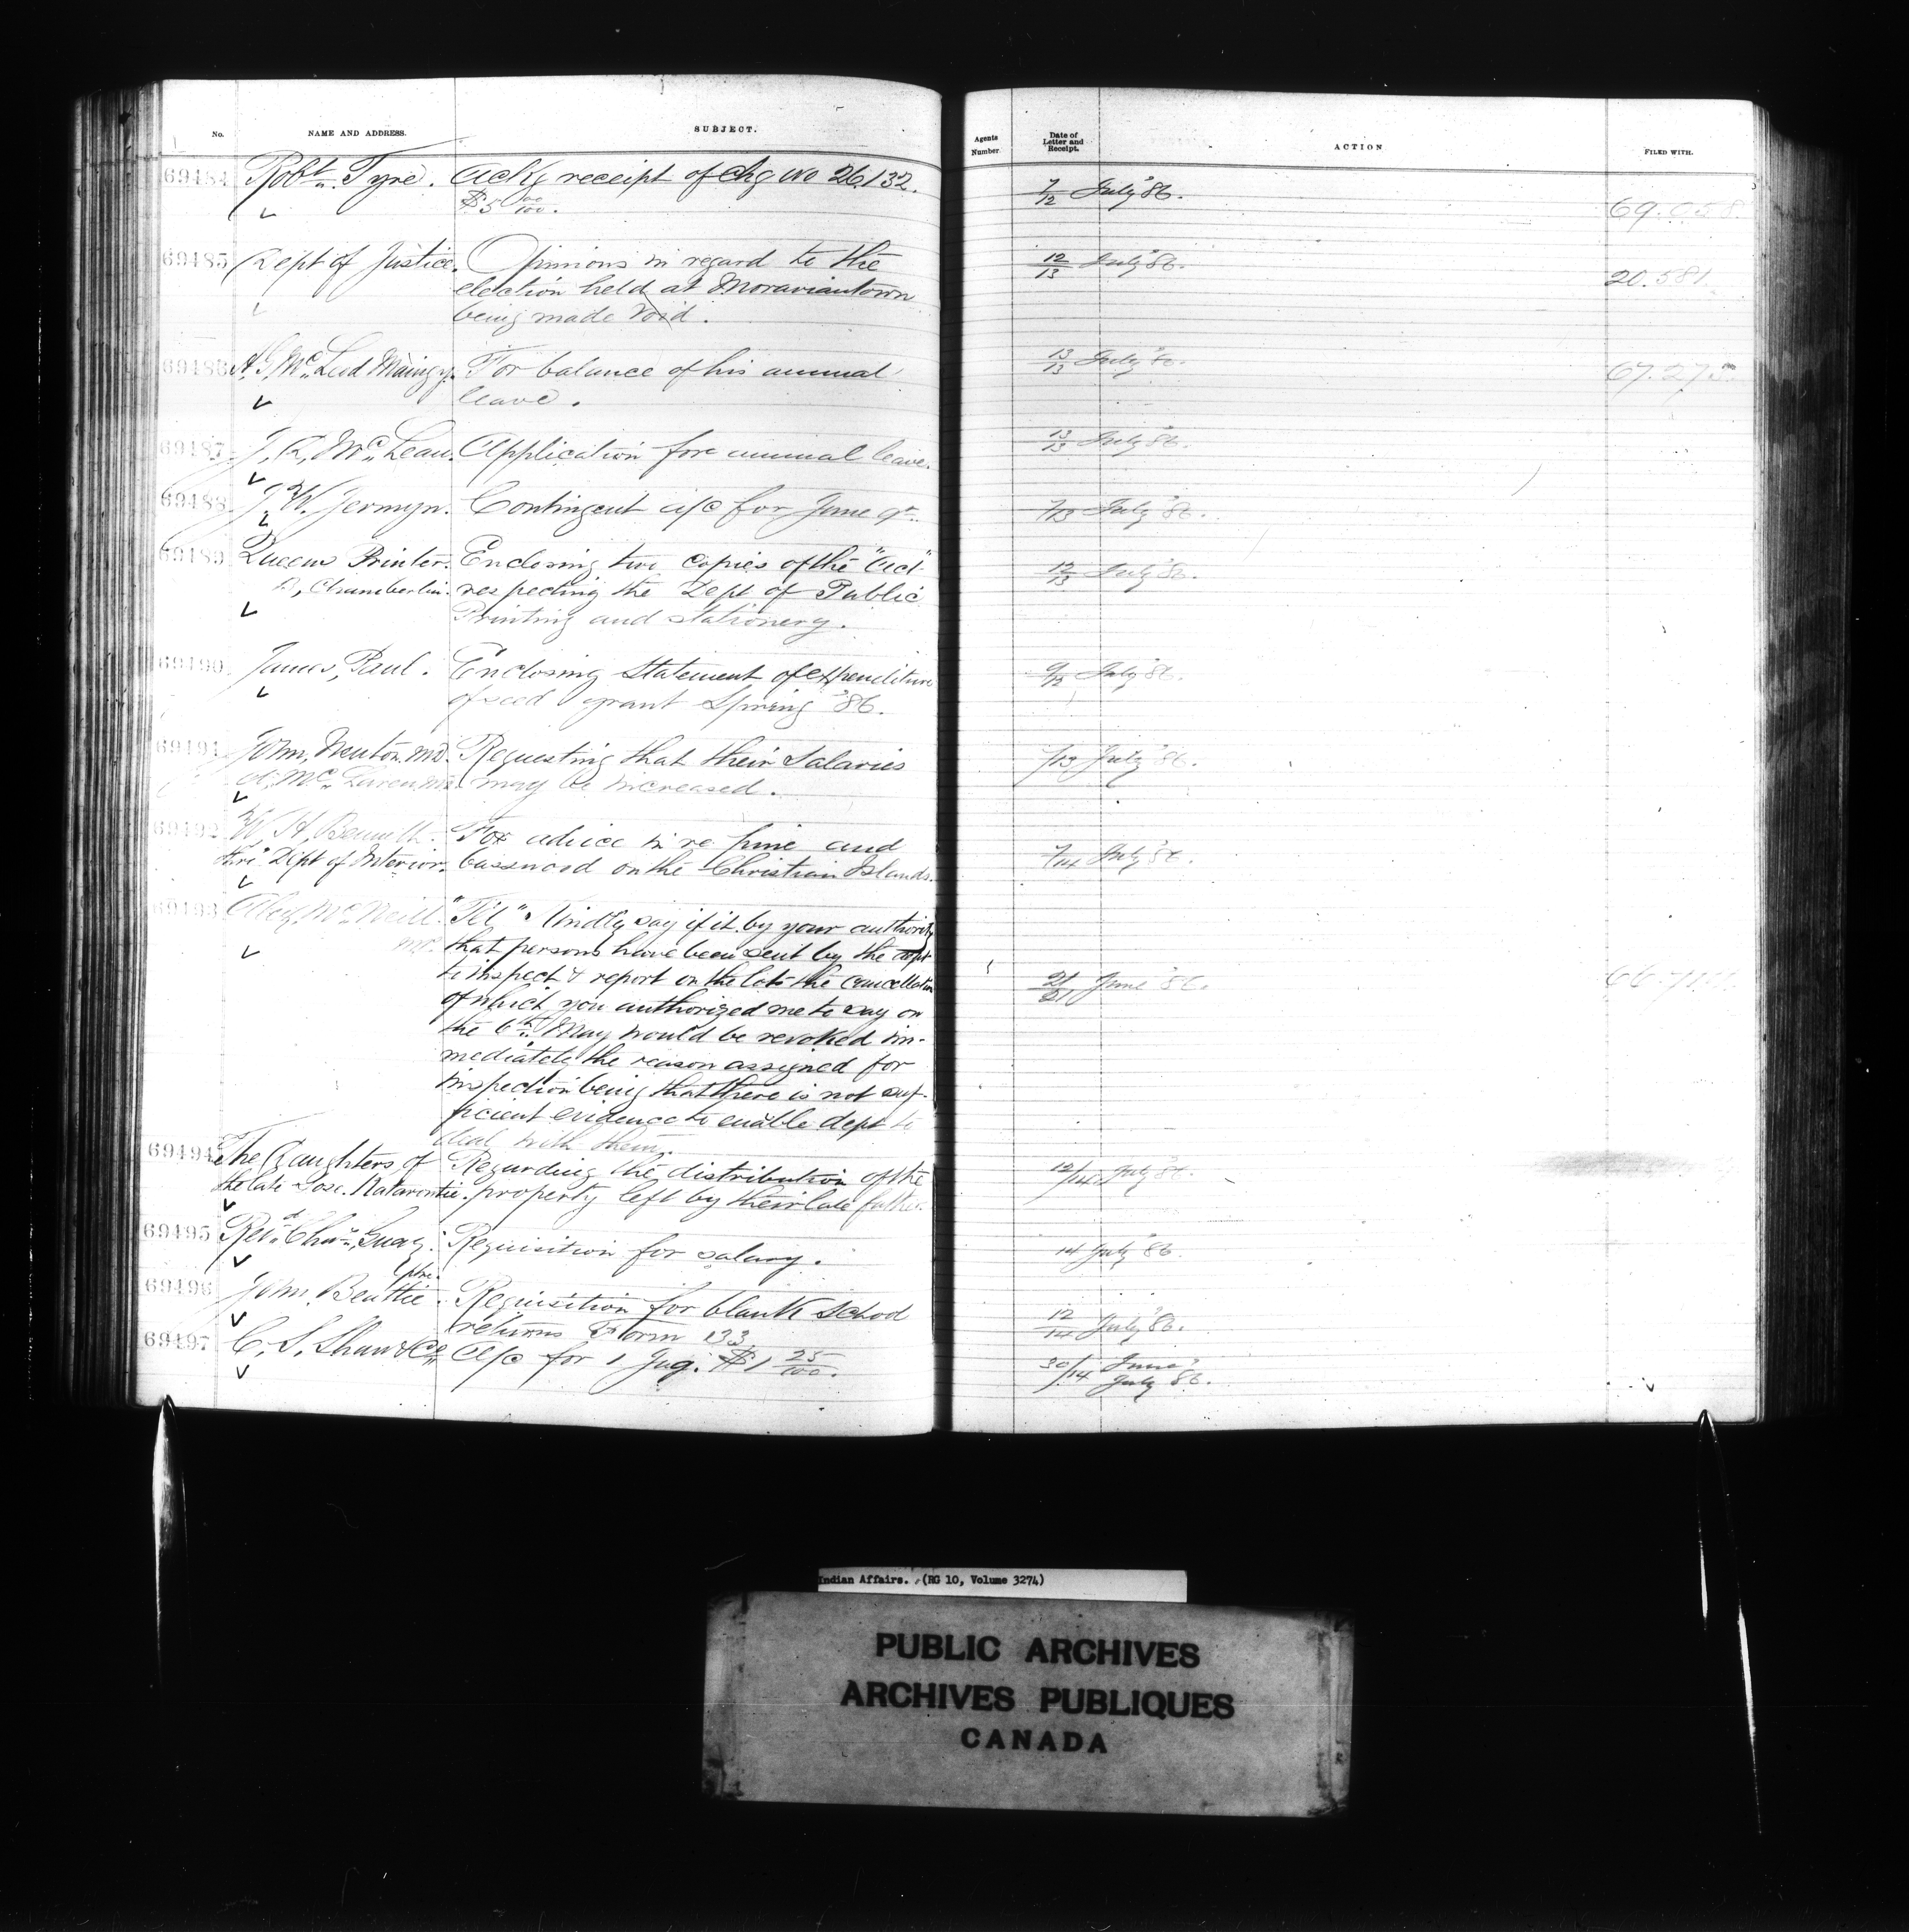 No. NAME AND ADDRESS. SUBJECT. Agents Number. Date of Letter and Receipt. ACTION FILED WITH.
69484 Robt. Tyre. Ackg receipt of chq No 26132. 7/12 July '86.
$5 00/100. 69.058
69485 Dept of Justice. Opinions in regard to the 12/13 July '86.
election held at Moraviantown 20.581
being made void.
69486 A. G. McLeod Maingy. For balance of his annual 13/13 July '86.
leave. 67.275
69487 J. A. McLean. Application for annual leave. 13/13 July '86.
69488 J. W. Jermyn. Contingent a/c for June qr. 7/13 July '86.
69489 Queens Printer. Enclosing two copies of the "Act" 12/13 July '86.
B. Chamberlin. respecting the Dept of Public
Printing and stationery.
69490 James Paul. Enclosing Statement of expenditure 9/12 July '86.
of seed grant Spring '86.
69491 John Newton MD. Requesting that their Salaries /13 July '86.
McLaren may be increased.
69492 W. H. Bennett. For advice in re pine and
thro' Dept of Interior. basswood on the Christian Islands. 7/14 July '86.
69493 Alex. McNeill "Tel" Kindly say if it by your authority
MP. that persons have been sent by the dept
to inspect & report on the lots the cancellation 21/21 June '86.
of which you authorized me to say on
the 6th May would be revoked im-
mediately the reason assigned for
inspection being that there is not suf-
ficient evidence to enable dept to
deal with them.
69494 The Daughters of Regarding the distribution of the 12/14 July '86.
the late Jose. property left by their late father.
69495 Revd. Chas. Guay. Requisition for salary. 14 July '86.
ptre.
69496 John Beattie. Requisition for blank school 12/14 July '86.
returns Form 133
69497 C. S. Shaw & Co. A/c for 1 Jug. $1 25/100. 30/14 June July '86.
Indian Affairs. (RG 10, Volume 3274)
PUBLIC ARCHIVES
ARCHIVES PUBLIQUES
CANADA